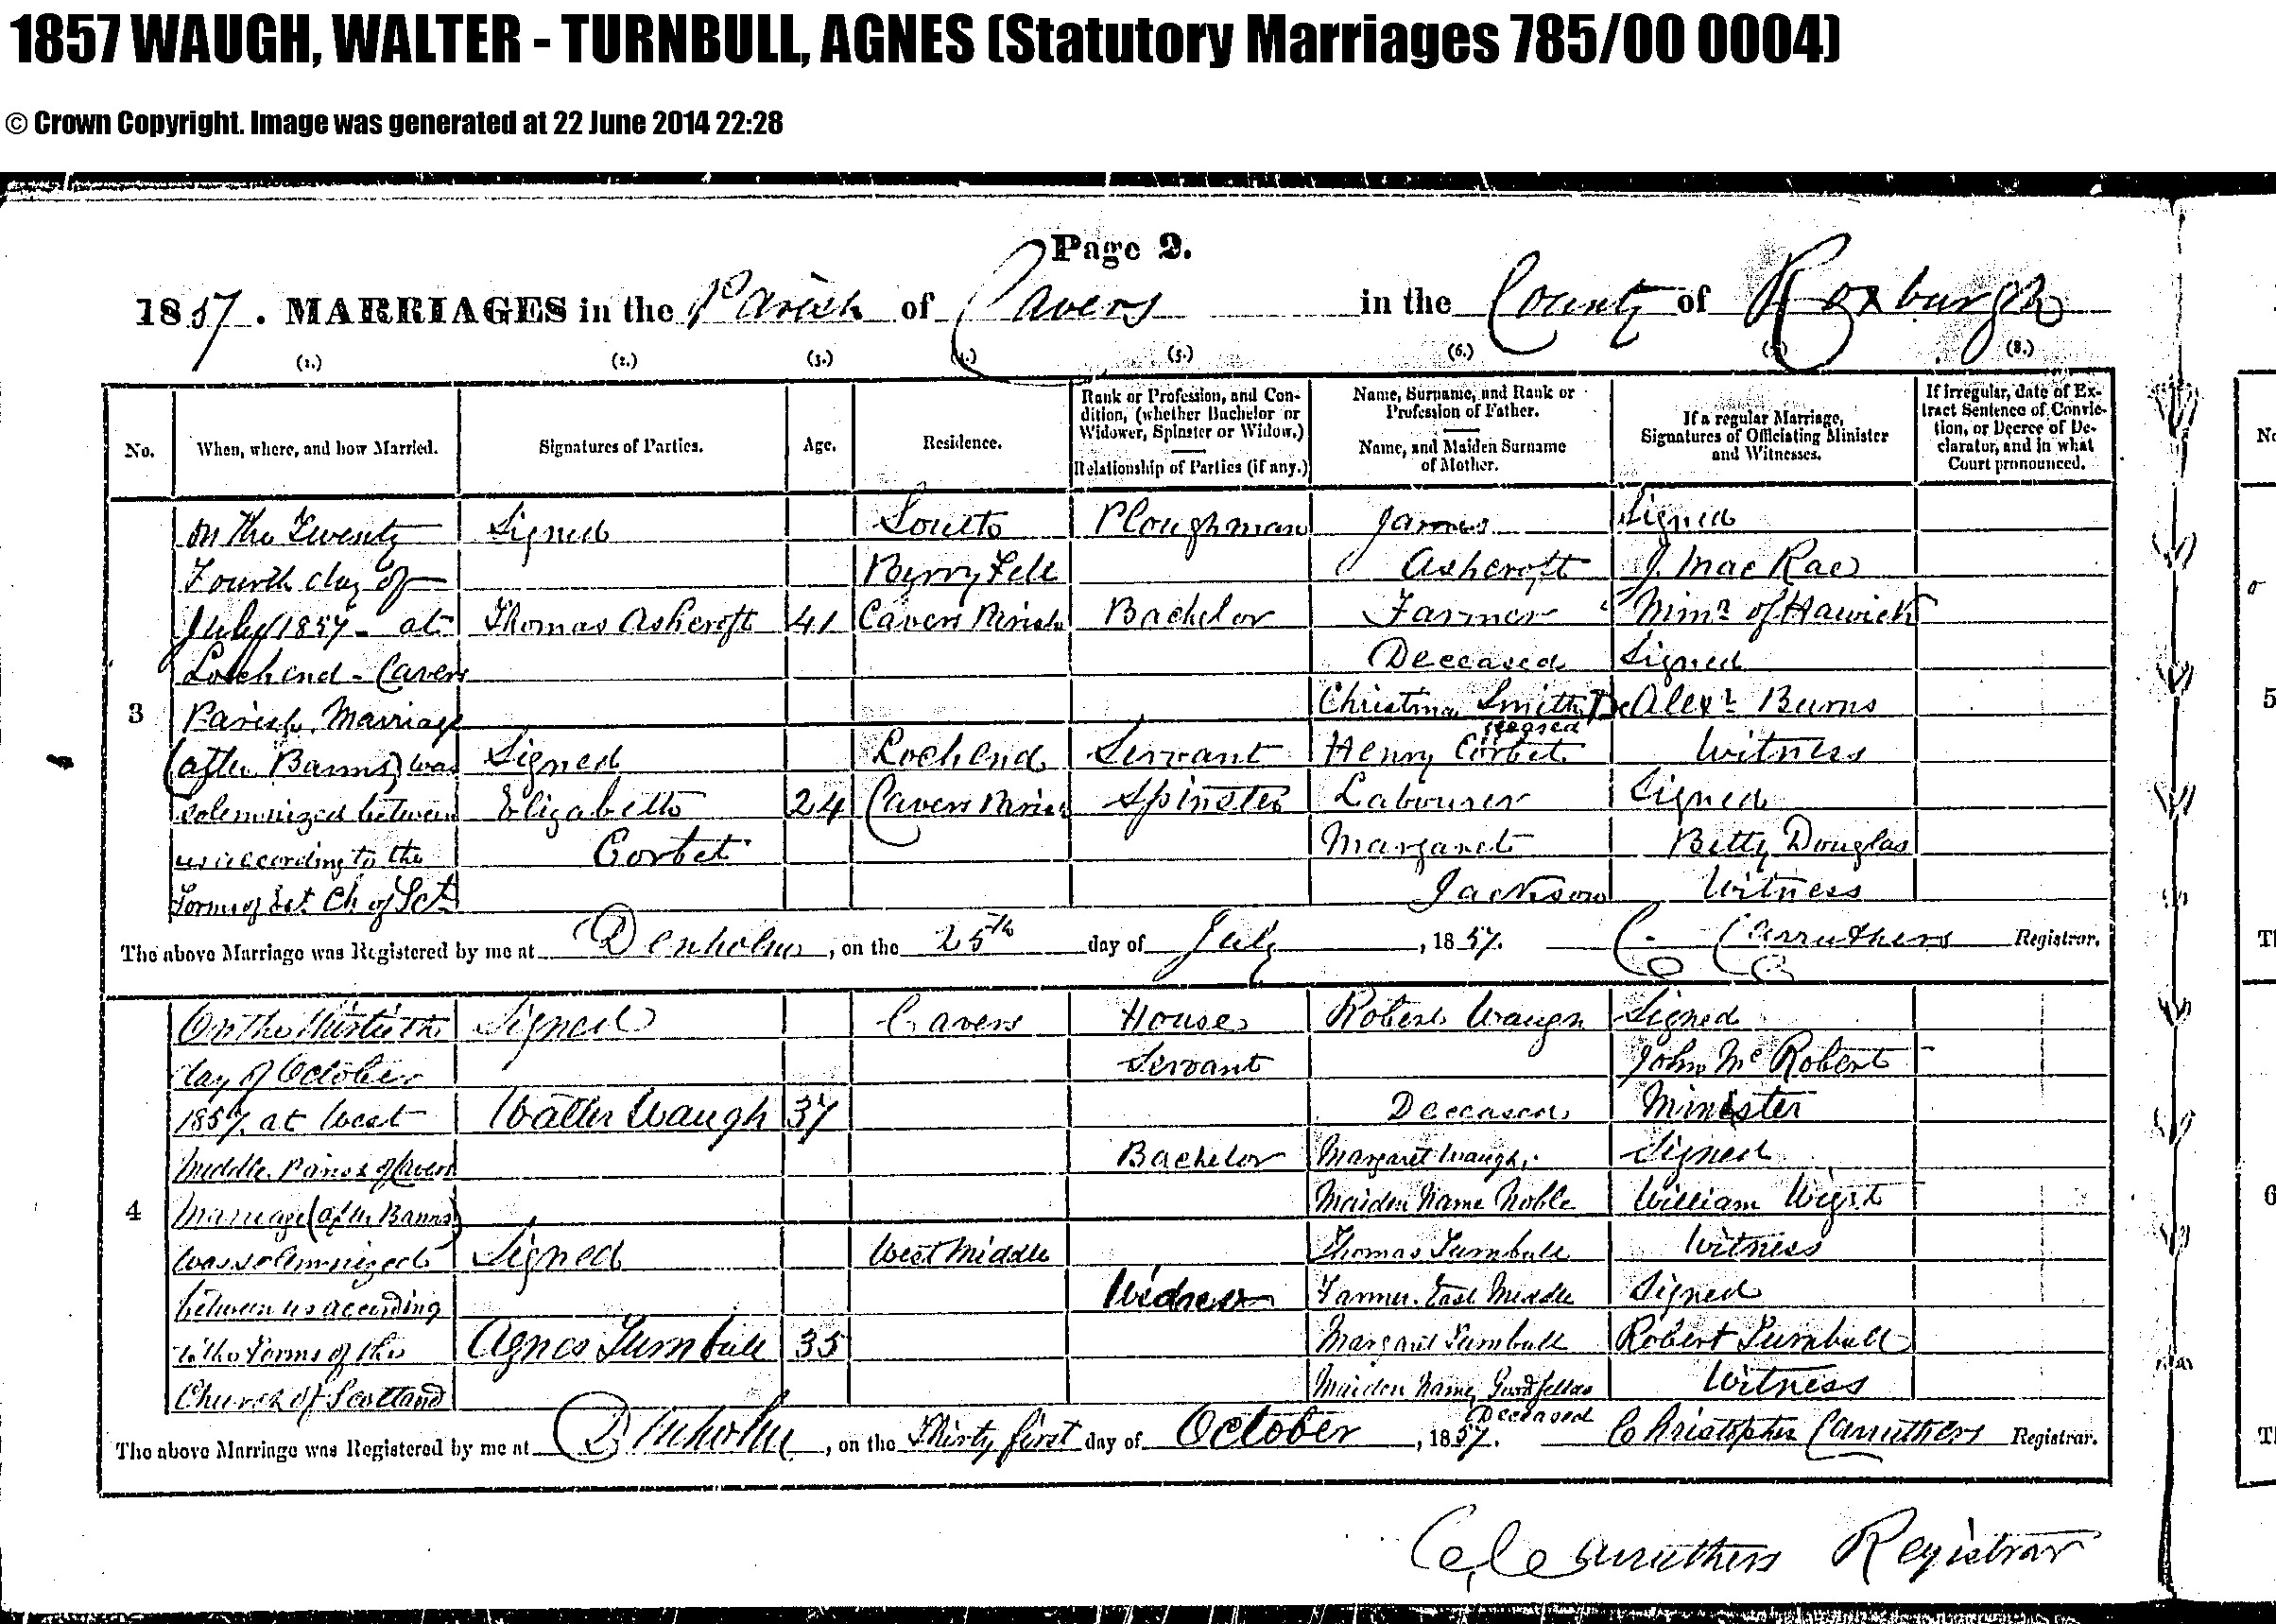 1857 WAUGH, WALTER - TURNBULL, AGNES (Statutory Marriages 785/00 0004)
© Crown Copyright. Image was generated at 22 June 2014 22:28
Page 2.
1857. MARRIAGES in the Parish of Cavers in the County of Roxburgh
(1.) (2.) (3.) (4.) (5.) (6.) (7.) (8.)
No.
When, where, and how Married.
Signatures of Parties.
Age.
Residence.
Rank or Profession, and Con-
dition, (whether Bachelor or
Widower, Spinster or Widow.)
Relationship of Parties (if any.)
Name, Surname, and Rank or
Profession of Father.
Name, and Maiden Surname
of Mother.
If a regular Marriage,
Signatures of Officiating Minister
and Witnesses.
If irregular, date of Ex-
tract Sentence of Convic-
tion, or Decree of De-
clarator, and in what
Court pronounced.
3
On the Twenty
Fourth day of
July 1857 - at
Lochend - Cavers
Parish. Marriage
(after Banns) was
solemnized between
us according to the
Forms of Est. Ch of Sct.
Signed
Thomas Ashcroft
Signed
Elizabeth
Corbet
41
24
South
Berryfell
Cavers Parish
Lochend
Cavers Parish
Ploughman
Bachelor
Servant
Spinster
James
Ashcroft
Farmer
Deceased
Christina Smith De
ceased
Henry Corbet
Labourer
Margaret
Jackson
Signed
J. Mac Rae
Minr. of Hawick
Signed
Alexr. Burns
Witness
Signed
Betty Douglas
Witness
The above Marriage was Registered by me at Denholm, on the 25th day of July, 1857. C. Carruthers Registrar.
4
On the Thirtieth
day of October
1857. at West
Middle Parish of Cavers
Marriage (after Banns)
was solemnized
between us according
to the Forms of the
Church of Scotland
Signed
Walter Waugh
Signed
Agnes Turnbull
37
35
Cavers
West Middle
House
Servant
Bachelor
Widow
Robert Waugh
Deceased
Margaret Waugh.
Maiden Name Noble
Thomas Turnbull
Farmer. East Middle
Margaret Turnbull
Maiden Name Goodfellow
Deceased
Signed
John Mc Robert
Minister
Signed
William Wight
Witness
Signed
Robert Turnbull
Witness
The above Marriage was Registered by me at Denholm, on the Thirty first day of October, 1857. Christopher Carruthers Registrar.
C. Carruthers Registrar
No
5
6